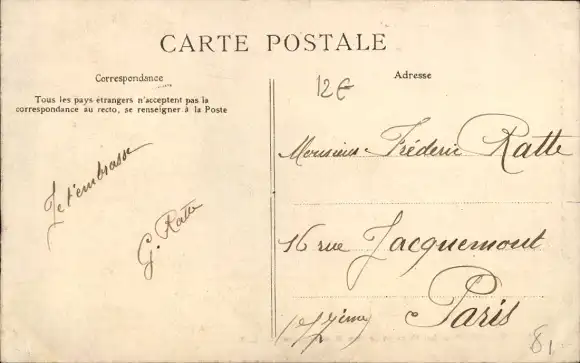 CARTE POSTALE
Correspondance
Adresse
Tous les pays étrangers n'acceptent pas la
correspondance au recto, se renseigner à la Poste
12€
Je t'embrasse
G. Ratte
Monsieur Fréderic Ratte
16 rue Jacquemont
Paris
81